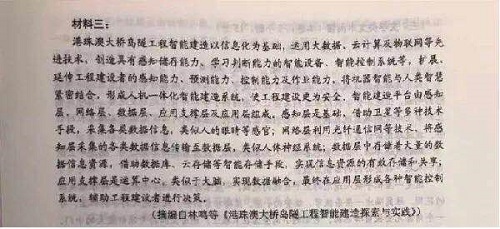 材料三：
港珠澳大桥岛隧工程智能建造以信息化为基础，运用大数据、云计算及物联网等先
进技术，创造具有感知储存能力、学习判断能力的智能设备、智能控制系统等，扩展、
延传工程建设者的感知能力、预测能力、控制能力及作业能力，将机器智能与人类智慧
紧密结合，形成人机一体化智能建造系统，使工程建设更为安全，智能建造平台由感知
层、网络层、数据层、应用支撑层及应用层组成，感知层是基础，借助卫星等多种技术
手段，采集各类数据信息，类似人的眼睛等感官；网络层利用光纤通信网等技术，将感
知层采集的各类数据信息传输至数据层，类似人体神经系统；数据层中存储着大量的数
据信息资源，借助数据库、云存储等智能存储手段，实现信息资源的有效存储和共享，
应用支撑层是运算中心，类似于大脑，实现数据融合，最终在应用层形成各种智能控制
系统，辅助工程建设者进行决策。
（摘编自林鸣等《港珠澳大桥岛隧工程智能建造探索与实践》）